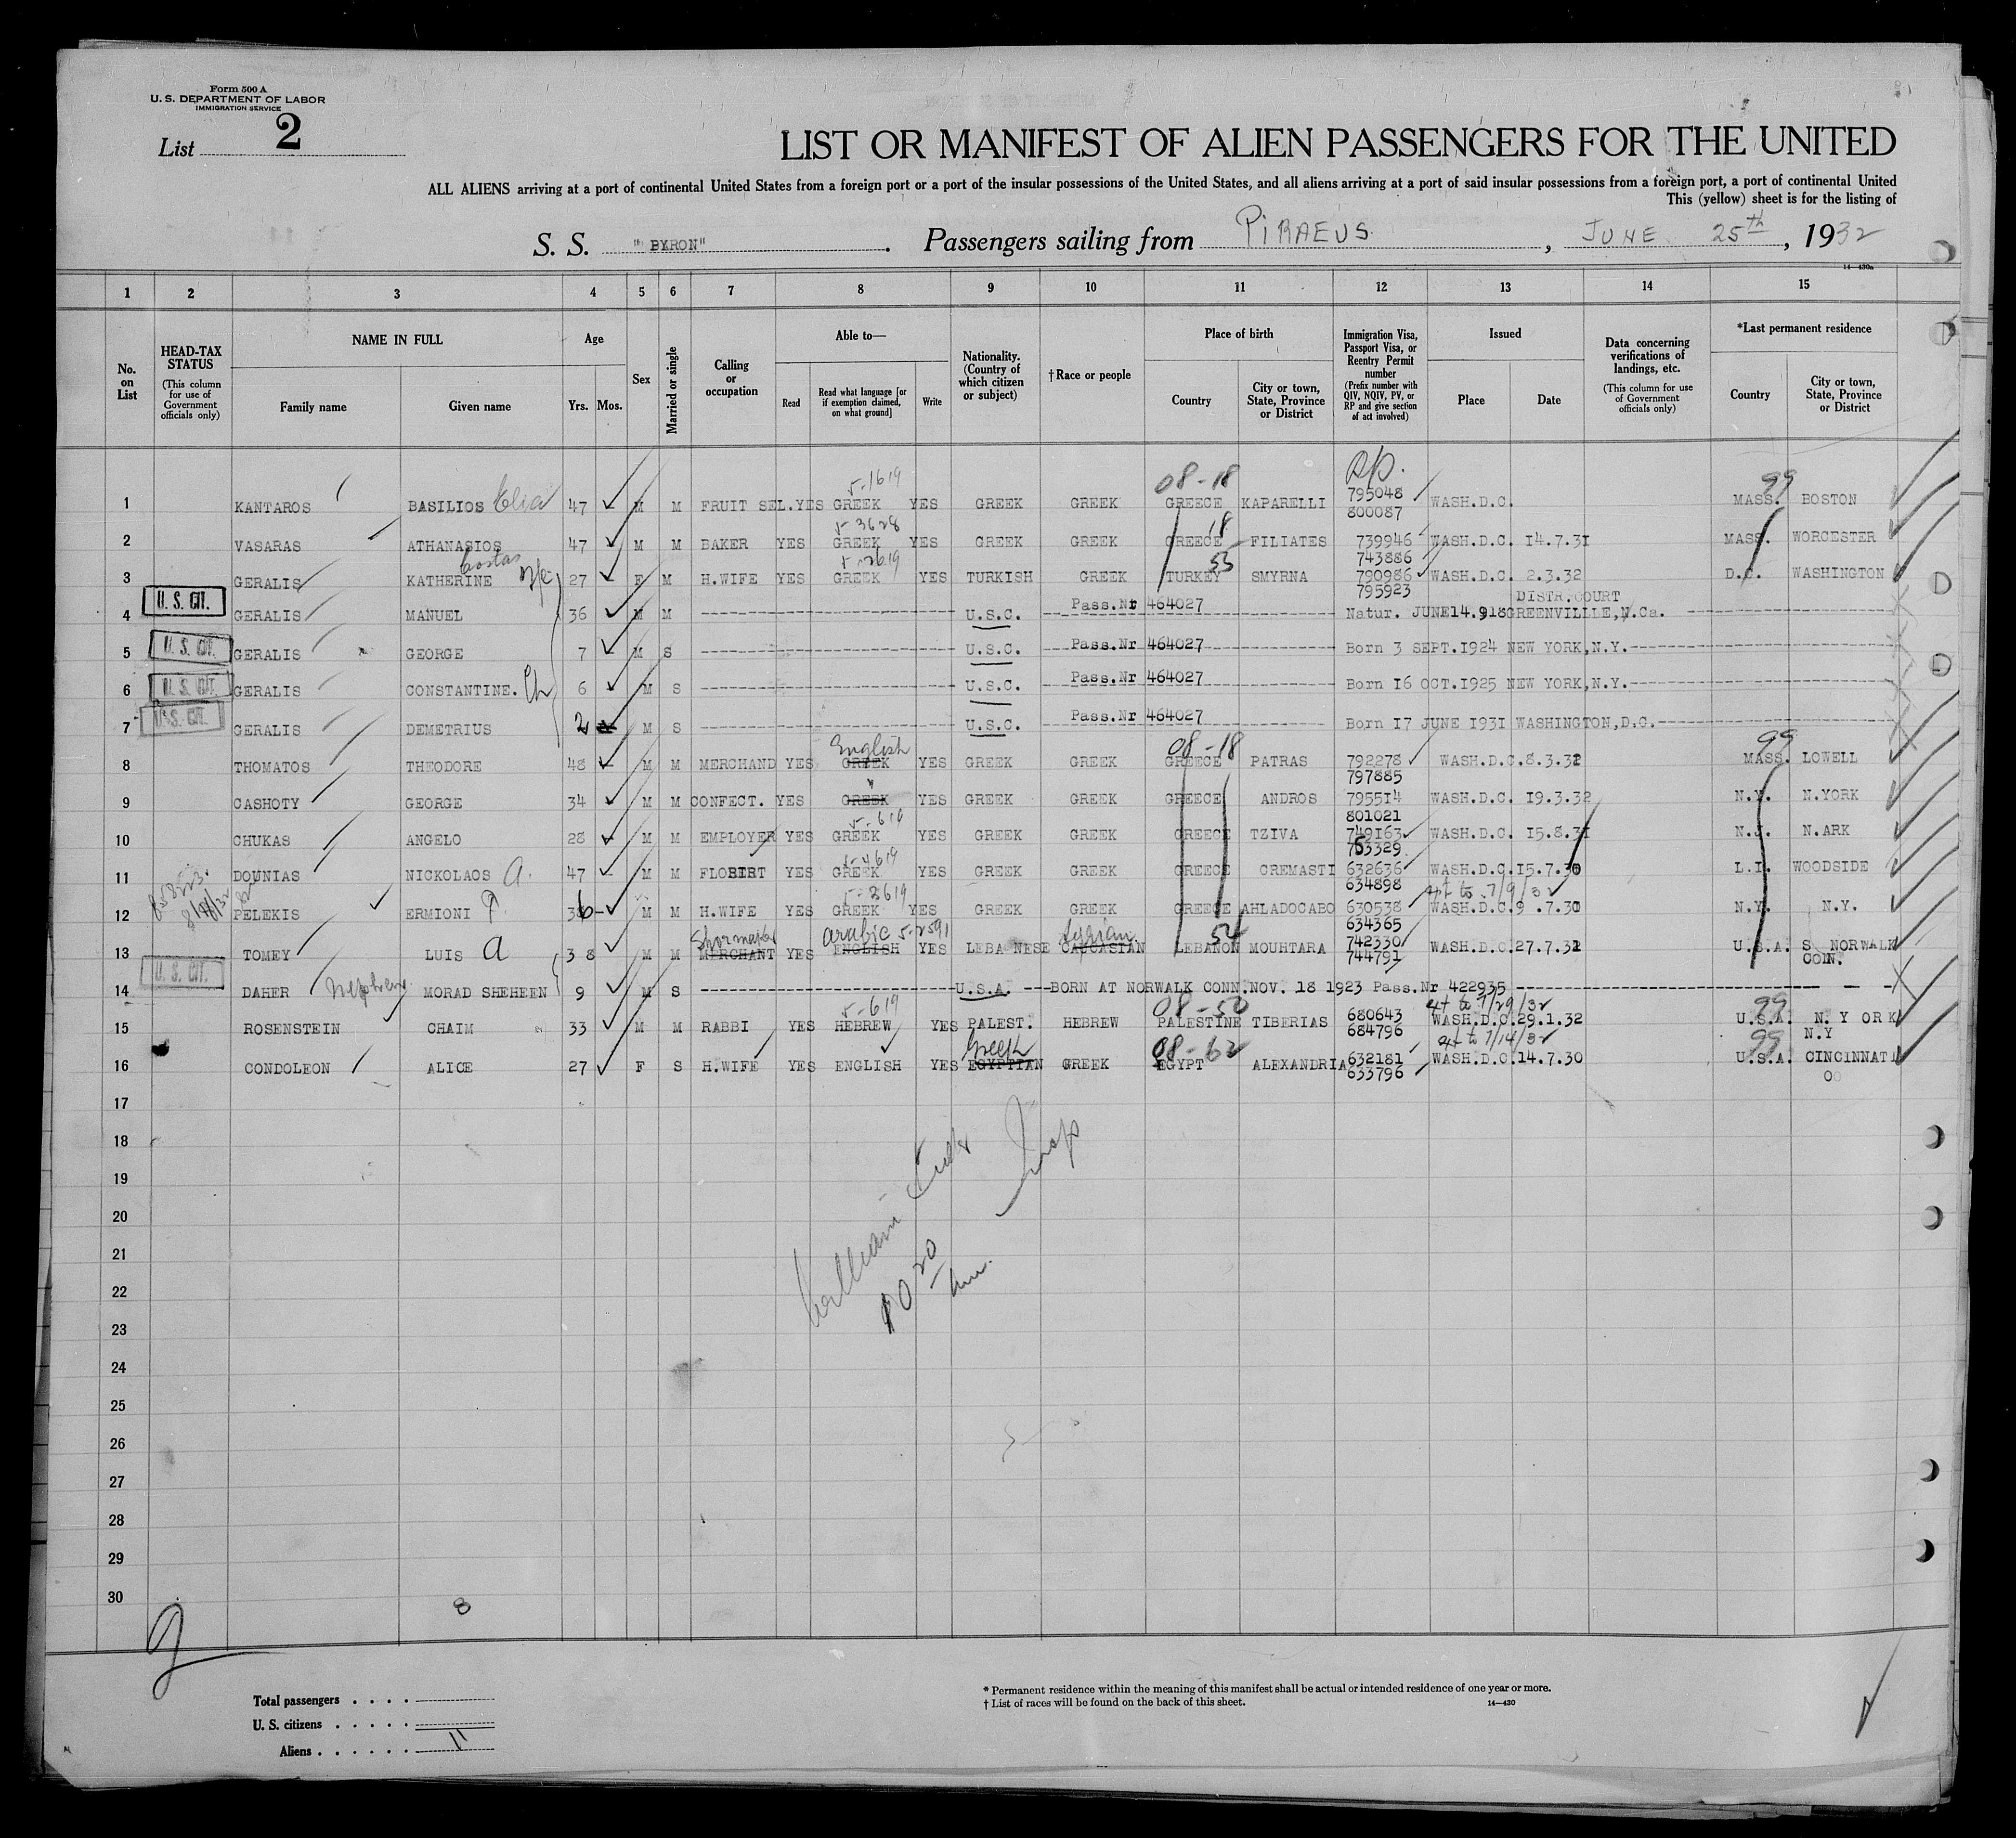 Form 500 A
U. S. DEPARTMENT OF LABOR
IMMIGRATION SERVICE
List 2
LIST OR MANIFEST OF ALIEN PASSENGERS FOR THE UNITED
ALL ALIENS arriving at a port of continental United States from a foreign port or a port of the insular possessions of the United States, and all aliens arriving at a port of said insular possessions from a foreign port, a port of continental United
This (yellow) sheet is for the listing of
S. S. "BYRON" . Passengers sailing from PIRAEUS , JUNE 25th , 1932
14—430a
1 2 3 4 5 6 7 8 9 10 11 12 13 14 15
No. on List
HEAD-TAX STATUS (This column for use of Government officials only)
NAME IN FULL Family name Given name
Age Yrs. Mos.
Sex
Married or single
Calling or occupation
Able to— Read Read what language [or if exemption claimed, on what ground] Write
Nationality. (Country of which citizen or subject)
†Race or people
Place of birth Country City or town, State, Province or District
Immigration Visa, Passport Visa, or Reentry Permit number (Prefix number with QIV, NQIV, PV, or RP and give section of act involved)
Issued Place Date
Data concerning verifications of landings, etc. (This column for use of Government officials only)
*Last permanent residence Country City or town, State, Province or District
5-1619 08-18 R/P. 99
1 KANTAROS BASILIOS Elia 47 M M FRUIT SEL. YES GREEK YES GREEK GREEK GREECE KAPARELLI 795048 800087 WASH.D.C. MASS. BOSTON
5-3628 18
2 VASARAS ATHANASIOS 47 M M BAKER YES GREEK YES GREEK GREEK GREECE FILIATES 739946 743886 WASH.D.C. 14.7.31 MASS. WORCESTER
Costas 5-2619 55
3 GERALIS KATHERINE 27 F M H.WIFE YES GREEK YES TURKISH GREEK TURKEY SMYRNA 790986 795923 WASH.D.C. 2.3.32 D.C. WASHINGTON
DISTR.COURT
U. S. CIT. 4 GERALIS MANUEL 36 M M U.S.C. Pass.Nr 464027 Natur. JUNE14.918 GREENVILLLE,N.Ca.
U. S. CIT. 5 GERALIS GEORGE 7 M S U.S.C. Pass.Nr 464027 Born 3 SEPT.1924 NEW YORK,N.Y.
U. S. CIT. 6 GERALIS CONSTANTINE. Ch 6 M S U.S.C. Pass.Nr 464027 Born 16 OCT.1925 NEW YORK,N.Y.
U. S. CIT. 7 GERALIS DEMETRIUS 2 M S U.S.C. Pass.Nr 464027 Born 17 JUNE 1931 WASHINGTON,D.C.
English 08-18 99
8 THOMATOS THEODORE 48 M M MERCHAND YES GREEK YES GREEK GREEK GREECE PATRAS 792278 797885 WASH.D.C. 8.3.32 MASS. LOWELL
"
9 CASHOTY GEORGE 34 M M CONFECT. YES GREEK YES GREEK GREEK GREECE ANDROS 795514 801021 WASH.D.C. 19.3.32 N.Y. N.YORK
5-619
10 CHUKAS ANGELO 28 M M EMPLOYER YES GREEK YES GREEK GREEK GREECE TZIVA 749163 753329 WASH.D.C. 15.8.31 N.J. N.ARK
5-4619
11 DOUNIAS NICKOLAOS A. 47 M M YES GREEK YES GREEK GREEK GREECE CREMASTI 632636 634898 WASH.D.C. 15.7.30 L.I. WOODSIDE
5-3619 7/9/32
12 PELEKIS ERMIONI P. 36 M M H.WIFE YES GREEK YES GREEK GREEK GREECE AHLADOCABO 630538 634365 WASH.D.C. 9 .7.30 N.Y. N.Y.
Shoemaker Arabic 5-2591 Syrian 54
13 TOMEY LUIS A 38 M M MERCHANT YES ENGLISH YES LEBANESE CAUCASIAN LEBANON MOUHTARA 742330 744791 WASH.D.C. 27.7.31 U.S.A. S NORWALK CON.
U. S. CIT. 14 DAHER Nephew MORAD SHEHEEN 9 M S U.S.A. BORN AT NORWALK CONN.NOV. 18 1923 Pass.Nr 422935
5-619 08-50 ext to 7/29/32 99
15 ROSENSTEIN CHAIM 33 M M RABBI YES HEBREW YES PALEST. HEBREW PALESTINE TIBERIAS 680643 684796 WASH.D.C. 29.1.32 U.S.A. N. Y ORK N.Y
Greek 08-62 ext to 7/14/32 99
16 CONDOLEON ALICE 27 F S H.WIFE YES ENGLISH YES EGYPTIAN GREEK EGYPT ALEXANDRIA 632181 633796 WASH.D.C. 14.7.30 U.S.A. CINCINNATI O
17
18
19
20
21
22
23
24
25
26
27
28
29
30
William
Insp
10 20
8
Total passengers
U. S. citizens
Aliens 11
* Permanent residence within the meaning of this manifest shall be actual or intended residence of one year or more.
† List of races will be found on the back of this sheet.
14—430